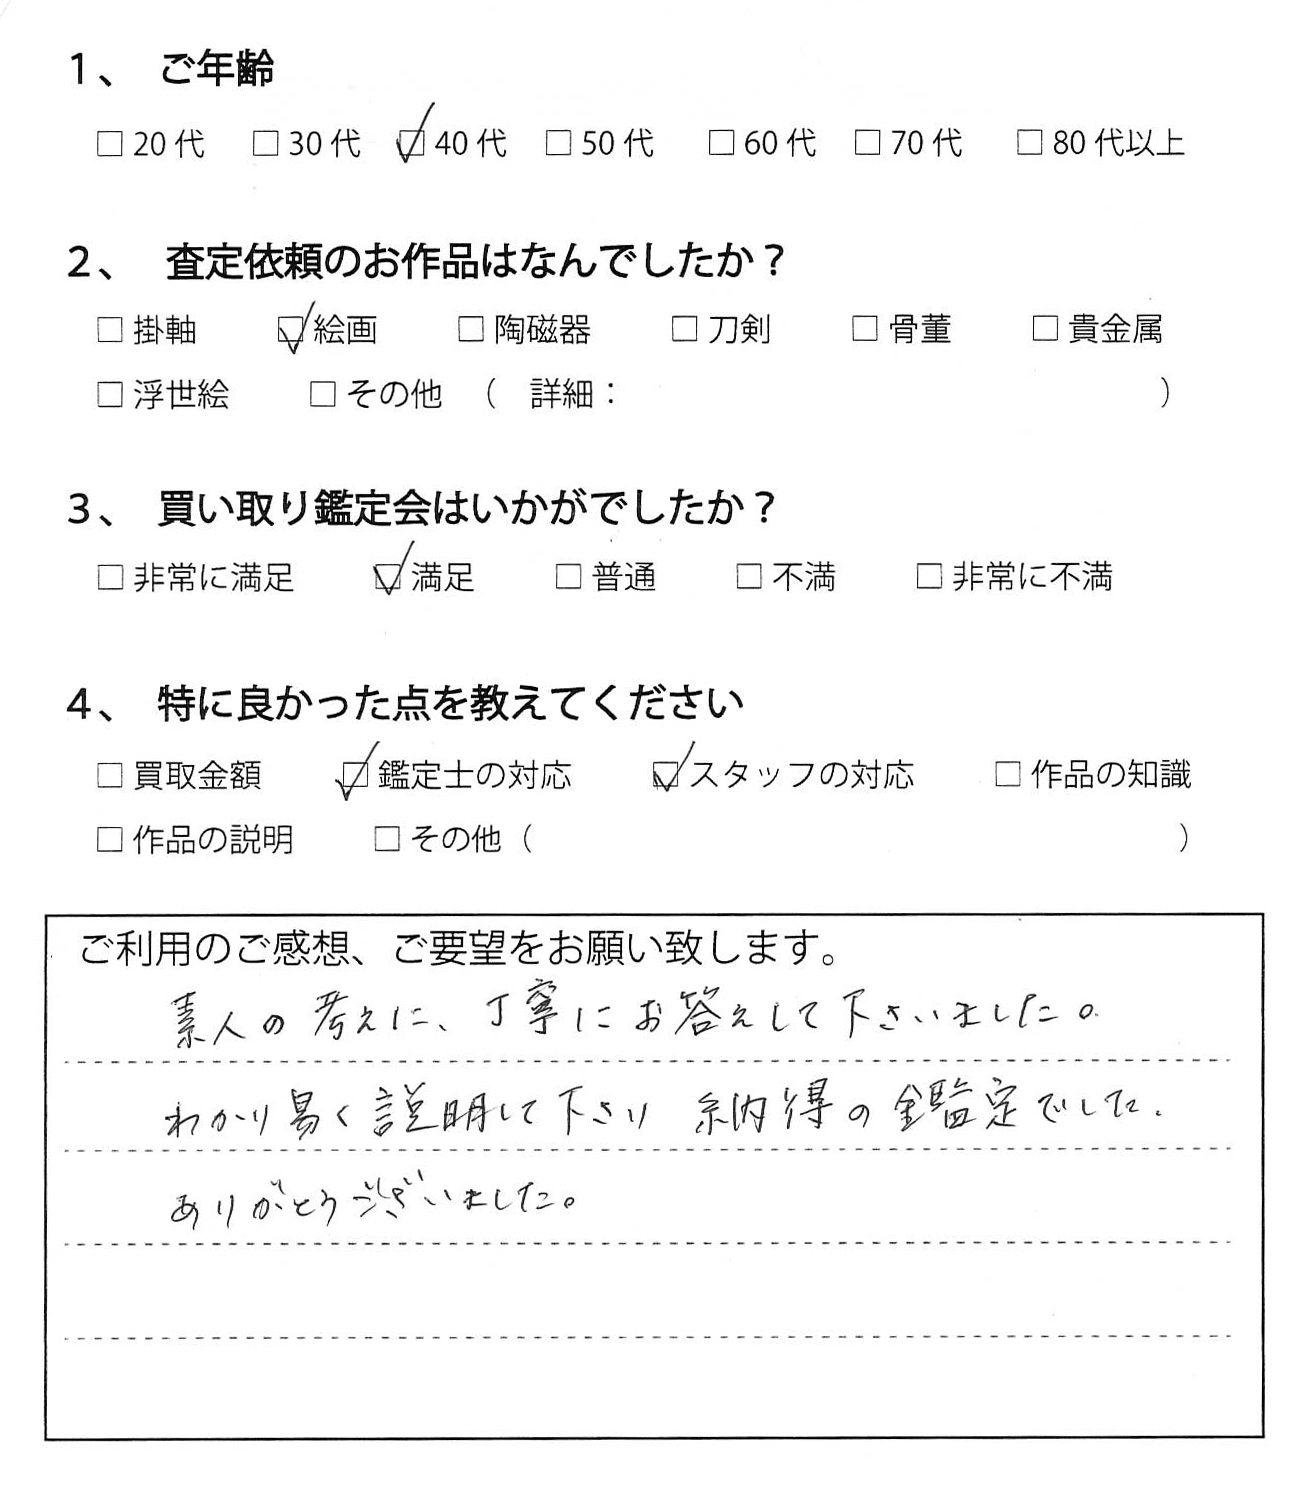 1、 ご年齢
□ 20代 □ 30代 ☑ 40代 □ 50代 □ 60代 □ 70代 □ 80代以上
2、 査定依頼のお作品はなんでしたか？
□ 掛軸 ☑ 絵画 □ 陶磁器 □ 刀剣 □ 骨董 □ 貴金属
□ 浮世絵 □ その他 （ 詳細： ）
3、 買い取り鑑定会はいかがでしたか？
□ 非常に満足 ☑ 満足 □ 普通 □ 不満 □ 非常に不満
4、 特に良かった点を教えてください
□ 買取金額 ☑ 鑑定士の対応 ☑ スタッフの対応 □ 作品の知識
□ 作品の説明 □ その他（ ）
ご利用のご感想、ご要望をお願い致します。
素人の考えに、丁寧にお答えして下さいました。
わかり易く説明して下さり 納得の鑑定でした.
ありがとうございました。